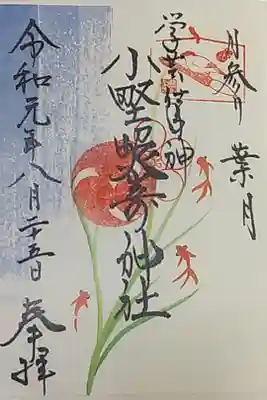 月参り
葉月
学芸の神
小野照崎神社
令和元年八月二十五日
奉拝